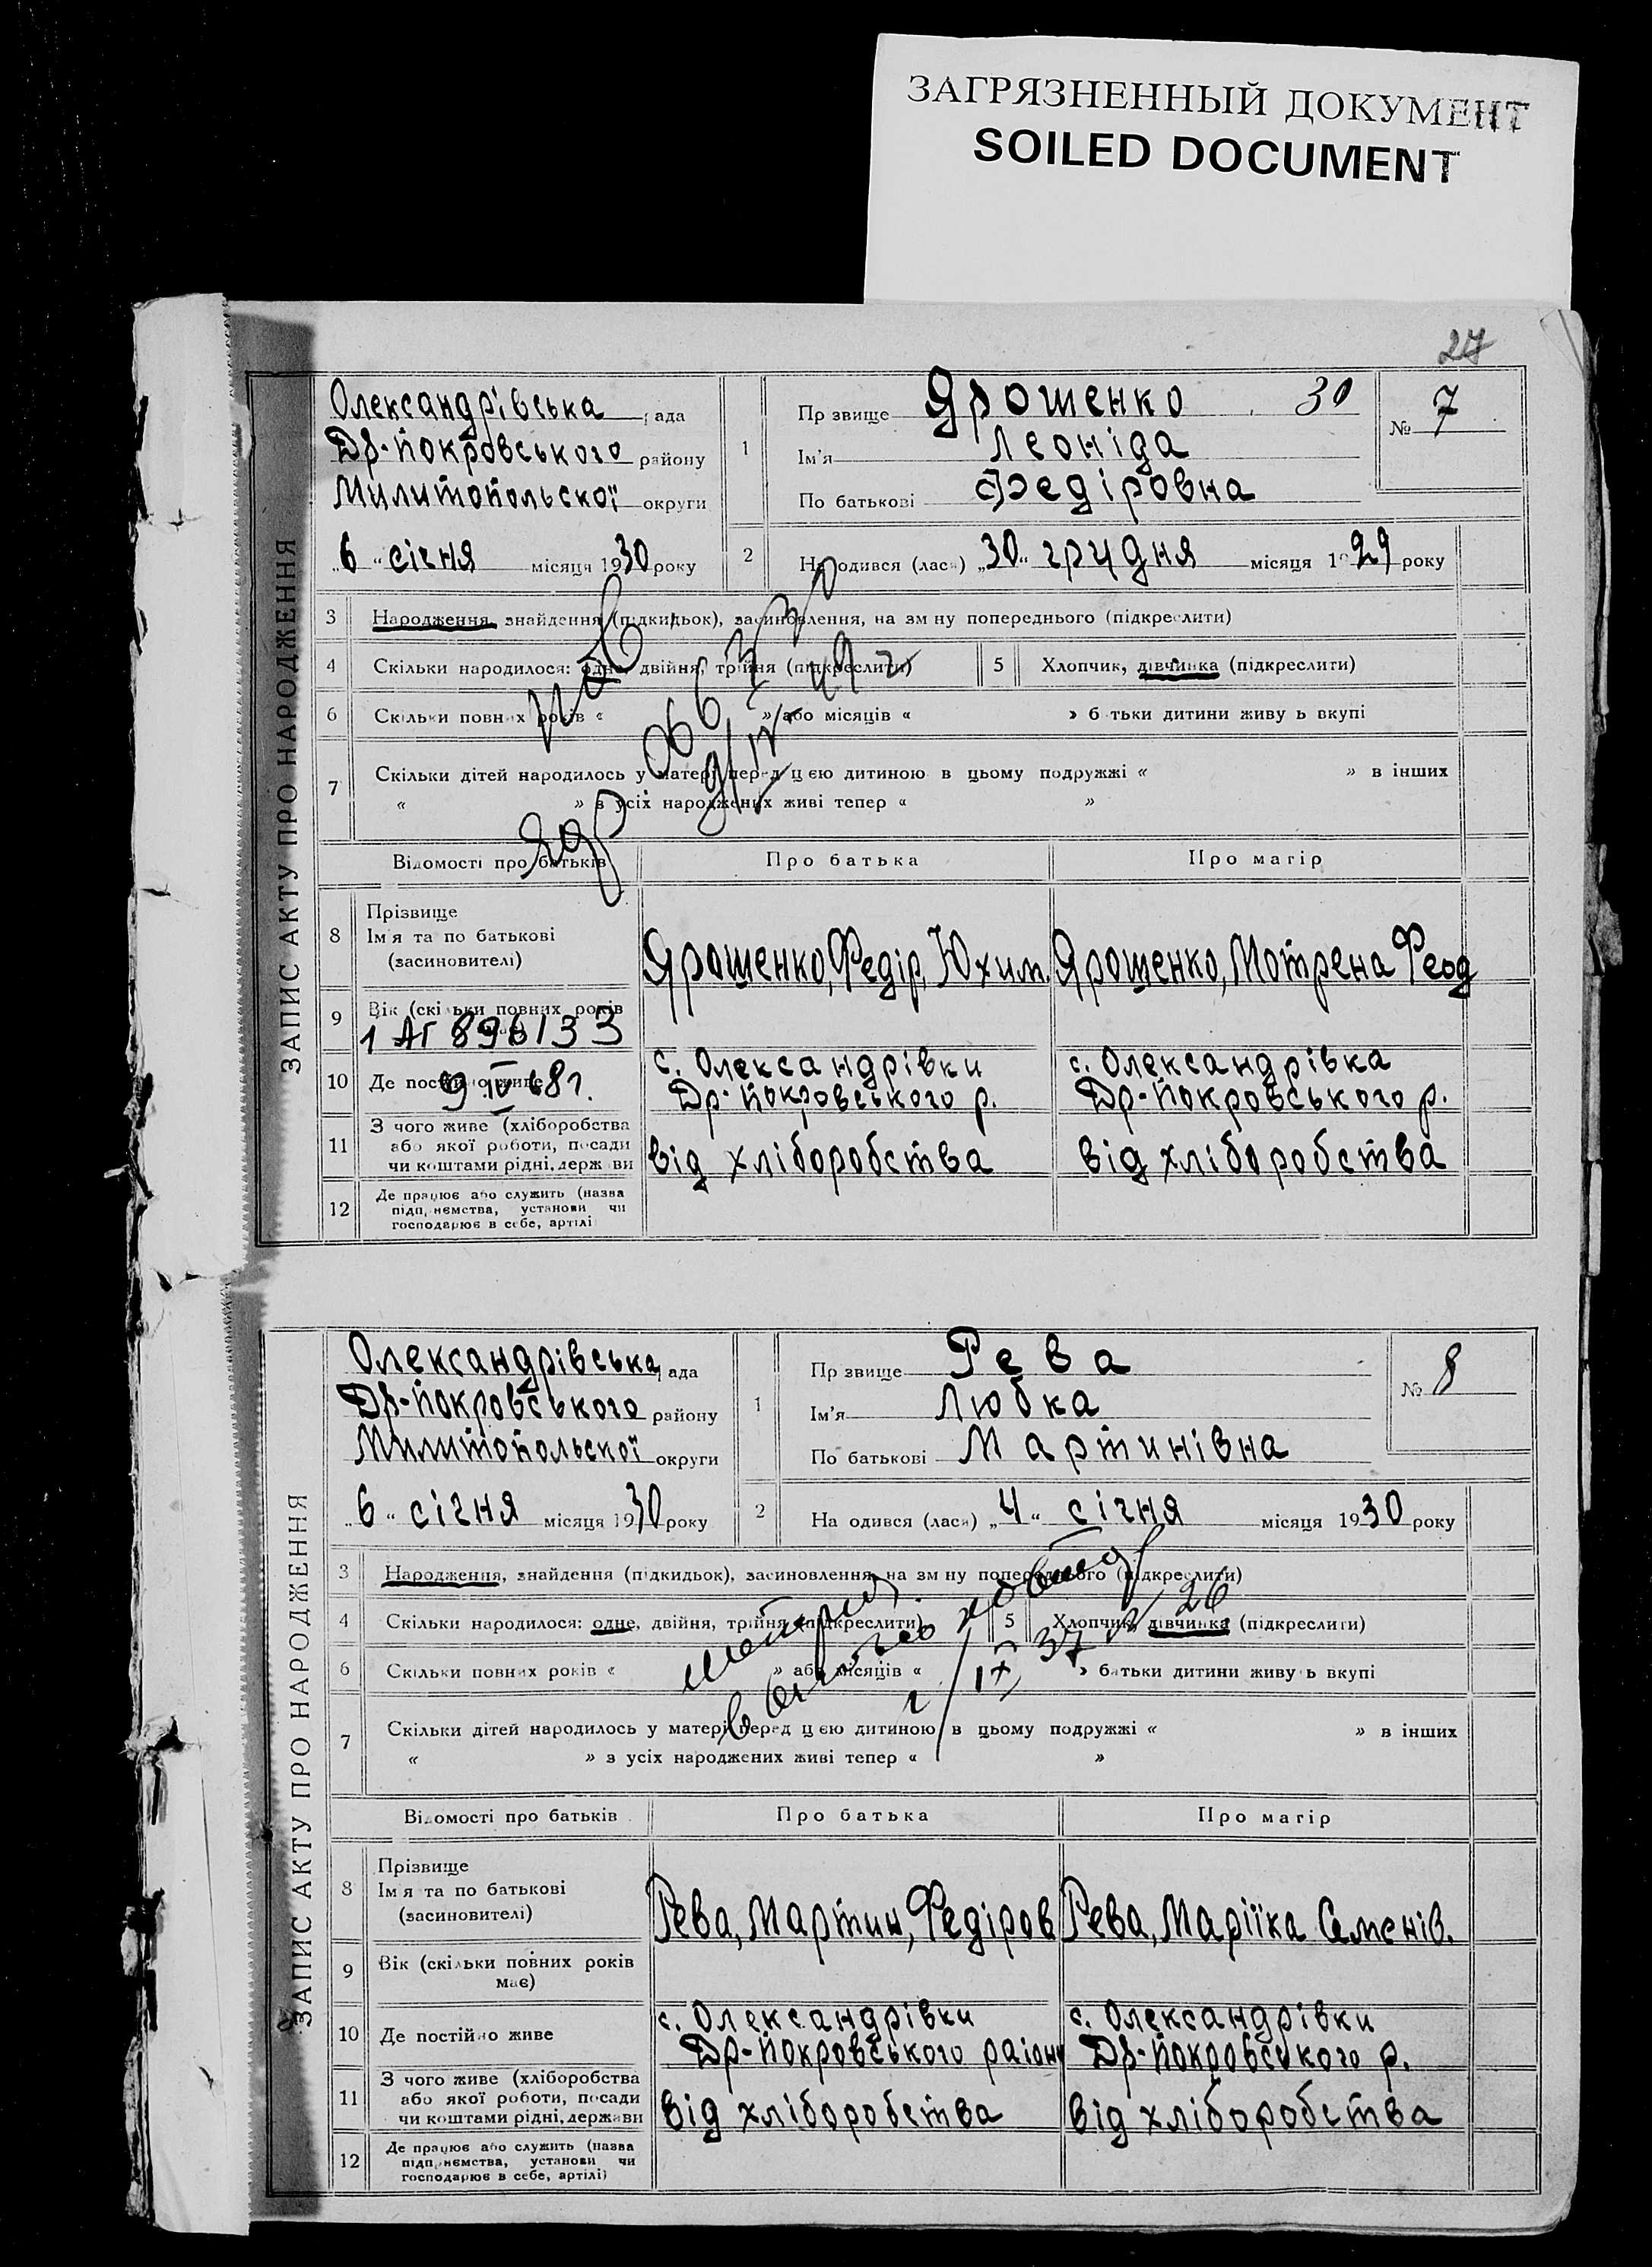 ЗАГРЯЗНЕННЫЙ ДОКУМЕНТ
SOILED DOCUMENT
27
ЗАПИС АКТУ ПРО НАРОДЖЕННЯ
Олександрівська рада
Др-Покровського району
Милитопольскої округи
„6“ січня місяця 1930 року
1
Прізвище Ярошенко 30
Ім'я Леоніда
По батькові Федіровна
№ 7
2 Народився (лася) „30“ грудня місяця 1929 року
3 Народження, знайдення (підкидьок), засиновлення, на зміну попереднього (підкреслити)
4 Скільки народилося: одне, двійня, трійня (підкреслити) 5 Хлопчик, дівчинка (підкреслити)
6 Скільки повних років « » або місяців « » батьки дитини живуть вкупі
7 Скільки дітей народилось у матері перед цією дитиною в цьому подружжі « » в інших
« » з усіх народжених живі тепер « »
Відомості про батьків Про батька Про матір
8 Прізвище
Ім'я та по батькові
(засиновителі)
Ярошенко, Федір, Юхим. Ярошенко, Мотрена Феод
9 Вік (скільки повних років
1 АГ 896133
10 Де постійно живе
9 IV 68 г.
с. Олександрівки
Др-Покровського р.
с. Олександрівка
Др-Покровського р.
11 З чого живе (хліборобства
або якої роботи, посади
чи коштами рідні, держави
від хліборобства від хліборобства
12 Де працює або служить (назва
підприємства, установи чи
господарює в себе, артілі
ЗАПИС АКТУ ПРО НАРОДЖЕННЯ
Олександрівська рада
Др-Покровського району
Милитопольскої округи
„6“ січня місяця 1930 року
1
Прізвище Рева
Ім'я Любка
По батькові Мартинівна
№ 8
2 Народився (лася) „4“ січня місяця 1930 року
3 Народження, знайдення (підкидьок), засиновлення, на зміну попереднього (підкреслити)
4 Скільки народилося: одне, двійня, трійня (підкреслити) 5 Хлопчик, дівчинка (підкреслити)
6 Скільки повних років « » або місяців « » батьки дитини живуть вкупі
7 Скільки дітей народилось у матері перед цією дитиною в цьому подружжі « » в інших
« » з усіх народжених живі тепер « »
Відомості про батьків Про батька Про матір
8 Прізвище
Ім'я та по батькові
(засиновителі)
Рева, Мартин, Федіров Рева, Маріїка Семенів.
9 Вік (скільки повних років
має)
10 Де постійно живе
с. Олександрівки
Др-Покровського раіону
с. Олександрівки
Др-Покровського р.
11 З чого живе (хліборобства
або якої роботи, посади
чи коштами рідні, держави
від хліборобства від хліборобства
12 Де працює або служить (назва
підприємства, установи чи
господарює в себе, артілі)